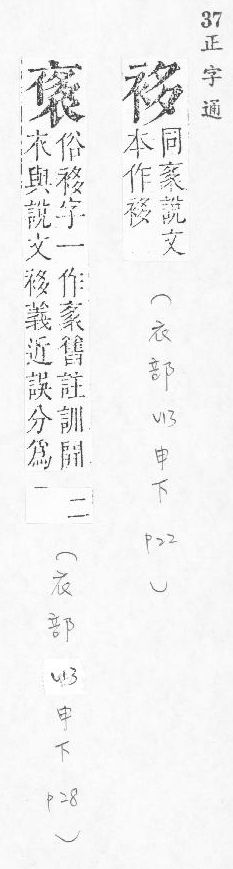 37正字通
袳
同袲說文
本作袳
（衣部 413 申下 p22）
俗袳字一作袲舊註訓開
衣與說文袳義近誤分為
二
（衣部 413 申下 p28）